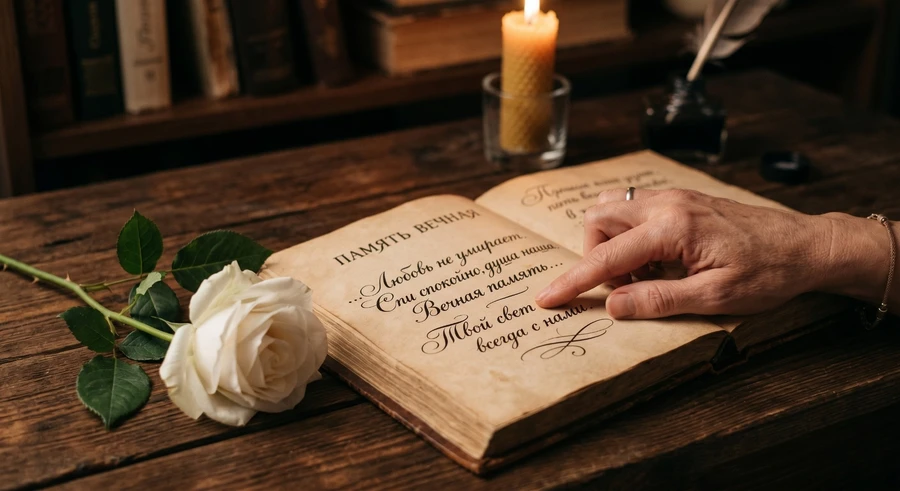 ПАМЯТЬ ВЕЧНАЯ
...Любовь не умирает...
Спи спокойно, душа наша
Вечная память...
Твой свет
всегда с нами